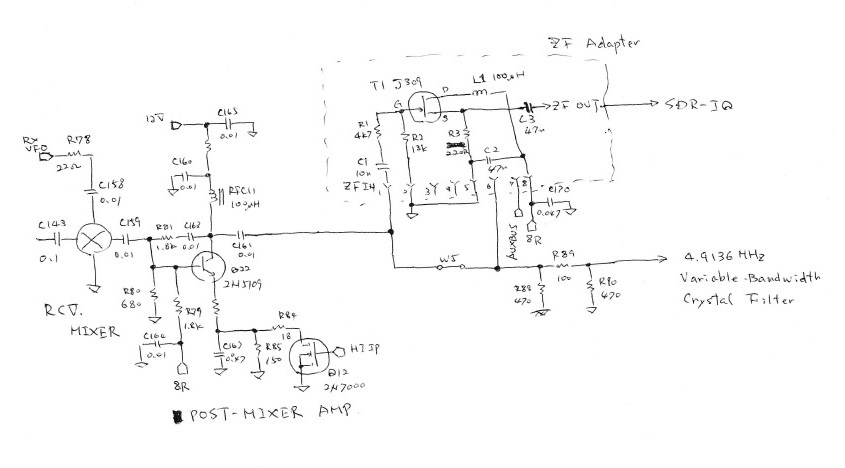 ZF Adapter
T1 J309
L1 100μH
D
G
S
R1
4k7
R2
13k
R3
220R
C3
47n
ZF OUT
SDR-IQ
C1
10n
C2
47n
ZFIN
1
2
3
4
5
6
7
8
12V
C165
0.01
RX
VFO
R78
22Ω
C160
0.01
RFC11
100μH
C158
0.01
C143
0.1
C159
0.01
R81
1.8k
C163
0.01
C161
0.01
Q22
2N5109
C170
0.047
AUXBUS
8R
W5
R89
100
R88
470
R90
470
4.9136 MHz
Variable-Bandwidth
Crystal Filter
RCV.
MIXER
R80
680
R79
1.8k
C164
0.01
8R
C167
0.047
R85
150
R84
18
HIIP
Q12
2N7000
POST-MIXER AMP.